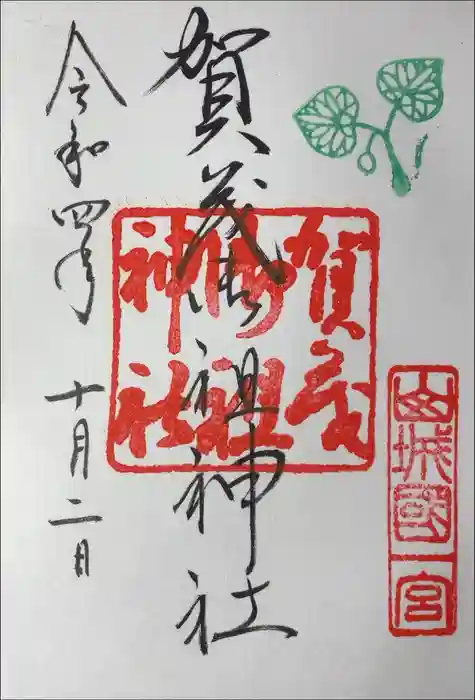 山城國一宮
賀茂御祖神社
賀茂
御祖
神社
令和四年 十月二日